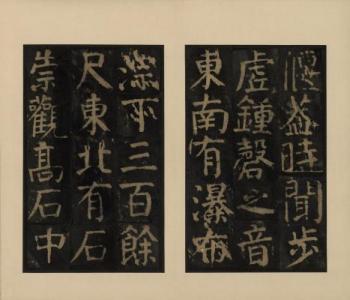 偃蓋時聞步
虛鍾磬之音
東南有瀑布
淙下三百餘
尺東北有石
崇觀髙石中